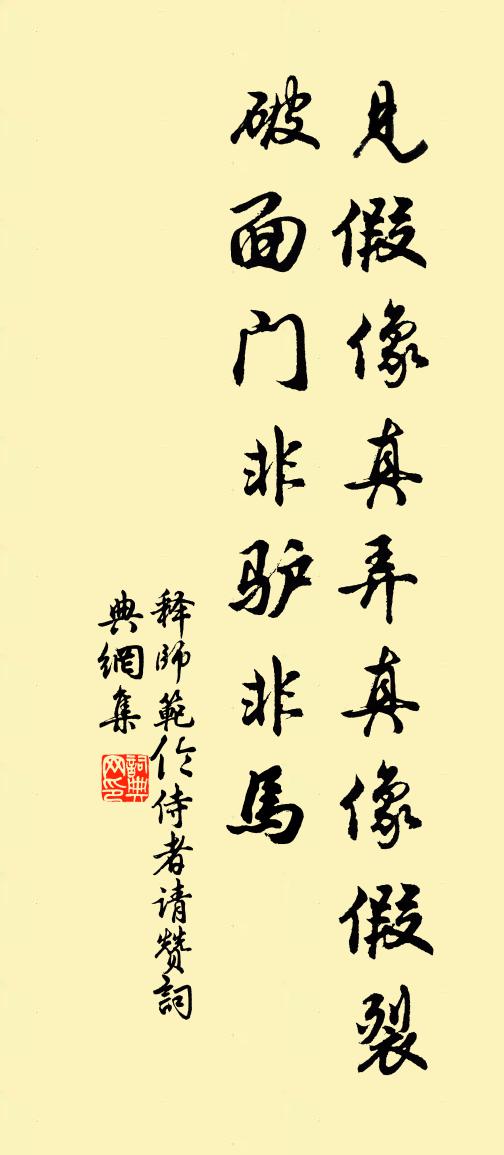 见假像真弄真像假裂
破面门非驴非馬
释師範伦侍者请赞詞
典網集
詞典
网印